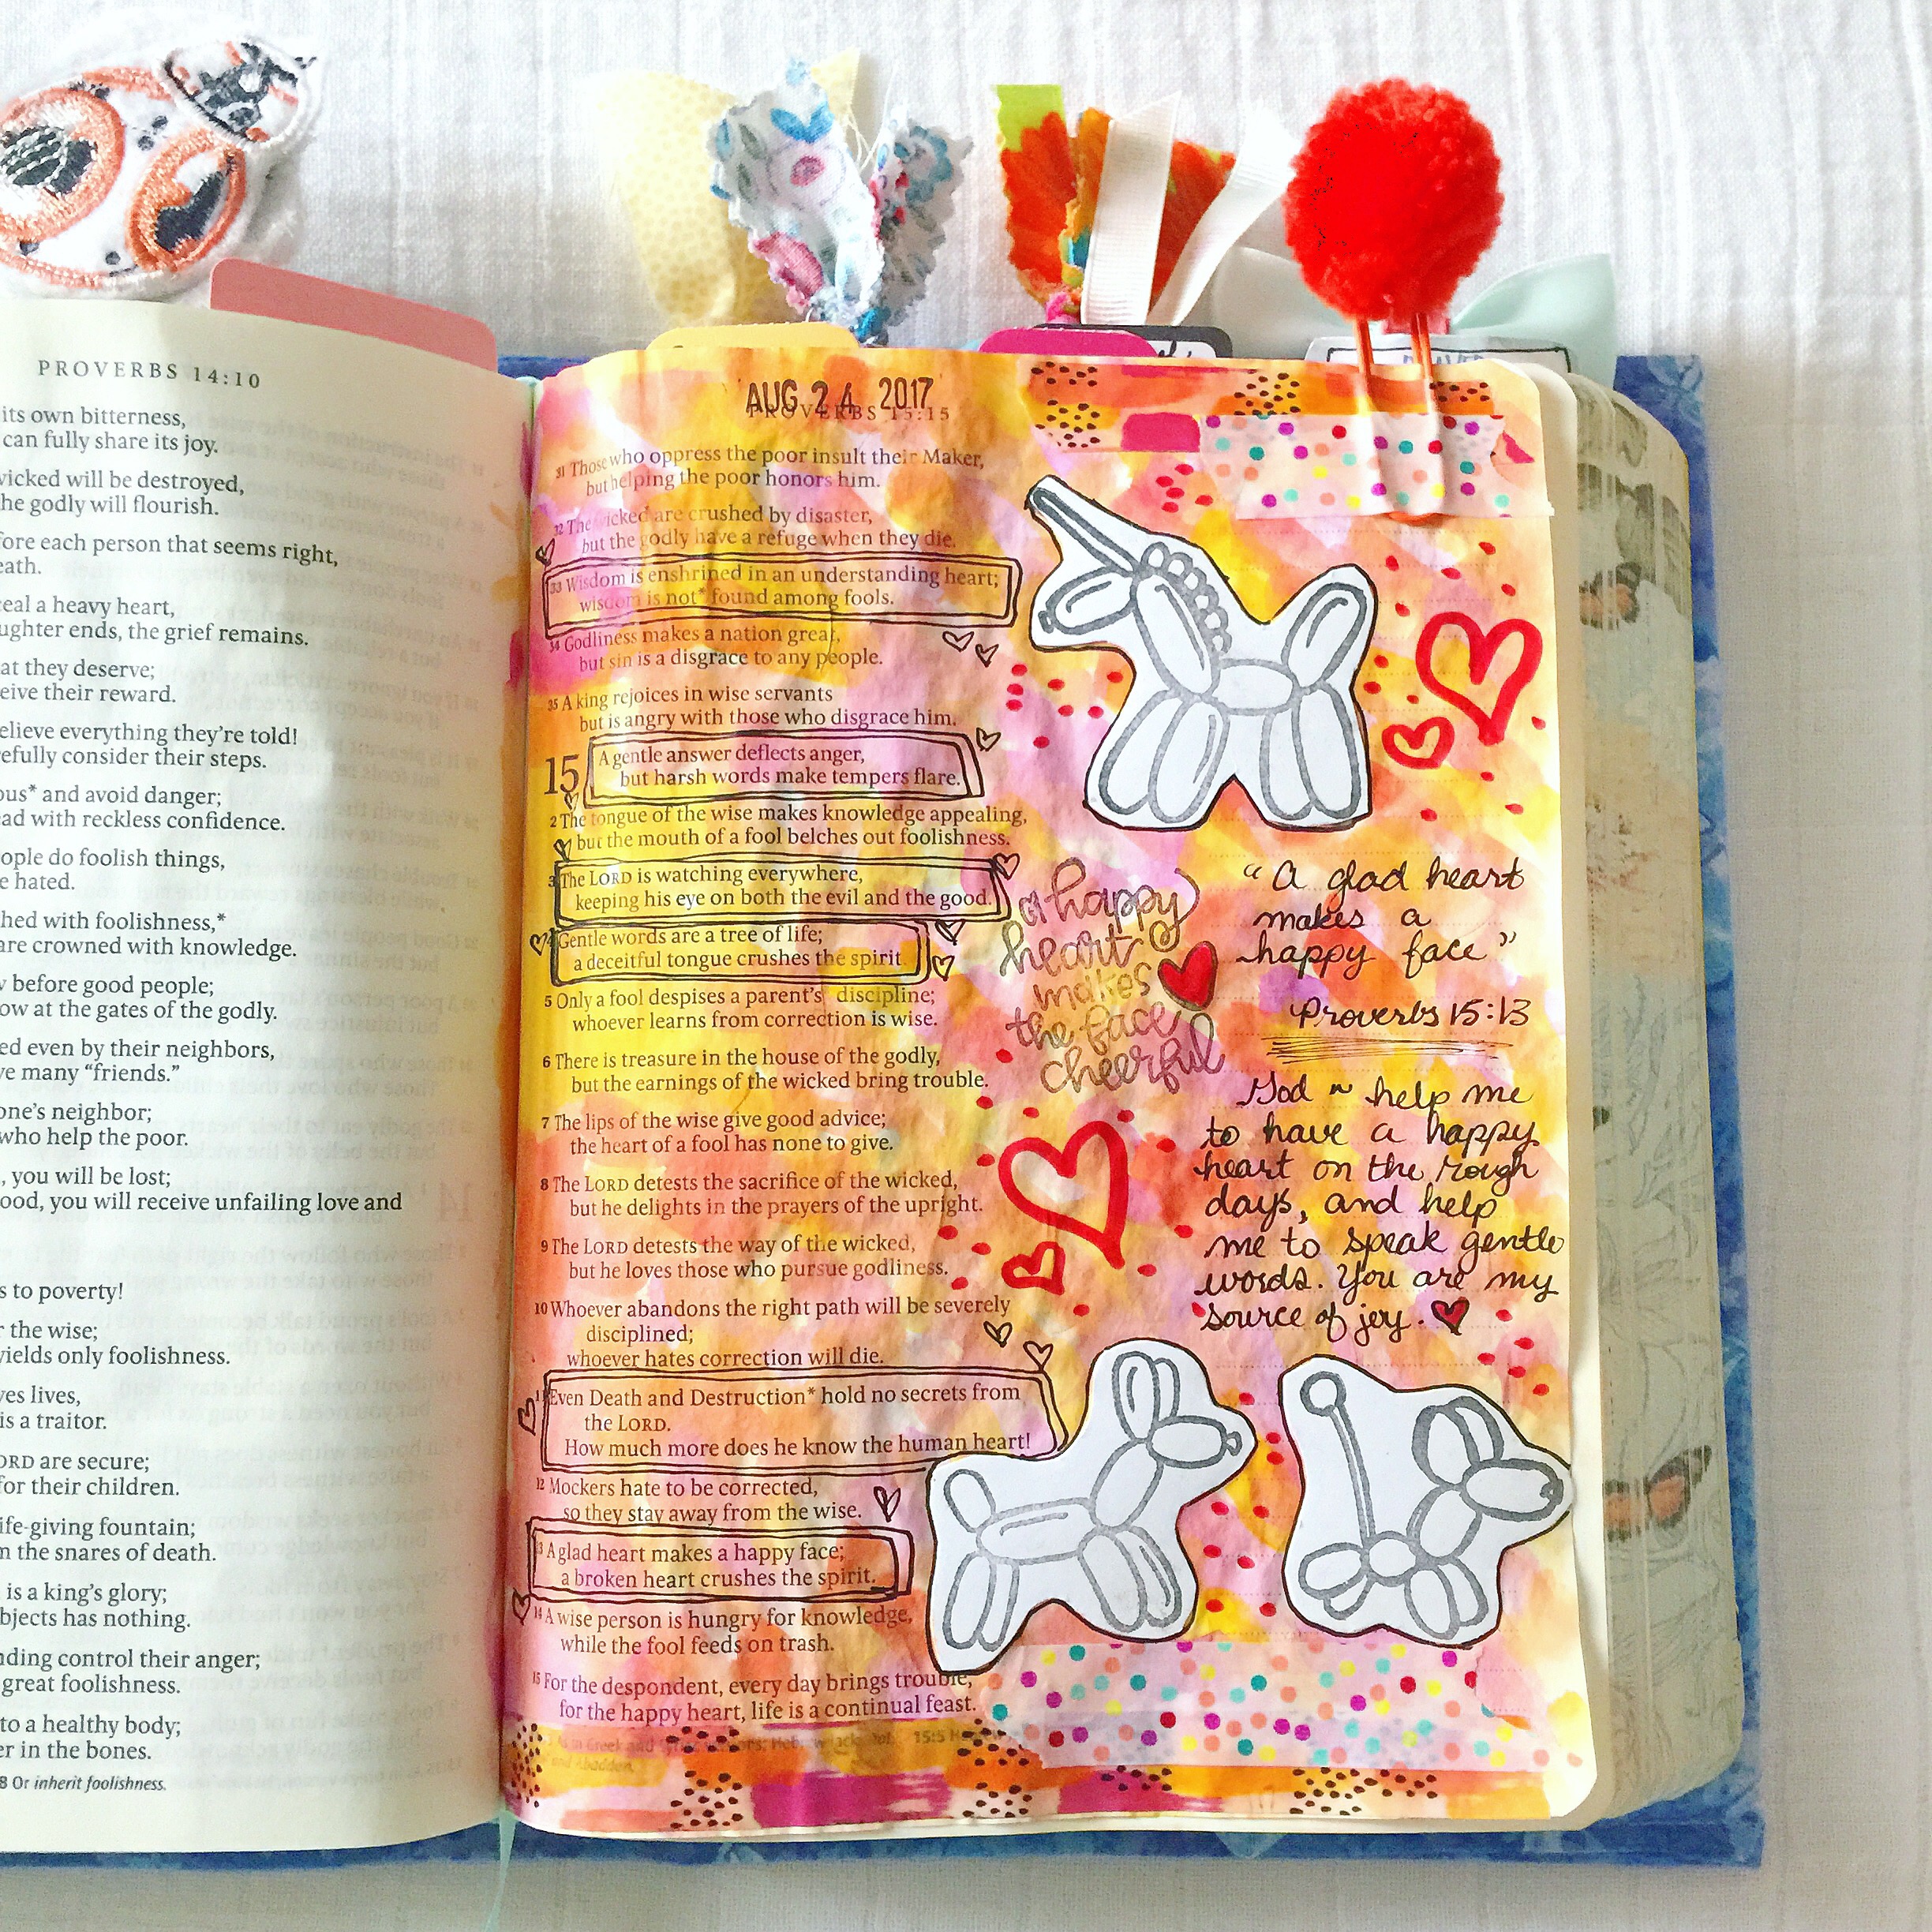 PROVERBS 14:10
its own bitterness,
can fully share its joy.
wicked will be destroyed,
the godly will flourish.
each person that seems right,
a heavy heart,
ends, the grief remains.
at they deserve;
their reward.
believe everything they're told!
consider their steps.
and avoid danger;
with reckless confidence.
do foolish things,
hated.
with foolishness,*
are crowned with knowledge.
before good people;
at the gates of the godly.
even by their neighbors,
many "friends."
one's neighbor;
who help the poor.
, you will be lost;
you will receive unfailing love and
to poverty!
the wise;
yields only foolishness.
lives,
is a traitor.
are secure;
for their children.
fountain;
the snares of death.
is a king's glory;
has nothing.
control their anger;
great foolishness.
to a healthy body;
in the bones.
8 Or inherit foolishness.
AUG 24 2017
PROVERBS 15:15
31 Those who oppress the poor insult their Maker,
but helping the poor honors him.
32 The wicked are crushed by disaster,
but the godly have a refuge when they die.
33 Wisdom is enshrined in an understanding heart;
wisdom is not* found among fools.
34 Godliness makes a nation great,
but sin is a disgrace to any people.
35 A king rejoices in wise servants
but is angry with those who disgrace him.
15 A gentle answer deflects anger,
but harsh words make tempers flare.
2 The tongue of the wise makes knowledge appealing,
but the mouth of a fool belches out foolishness.
3 The LORD is watching everywhere,
keeping his eye on both the evil and the good.
4 Gentle words are a tree of life;
a deceitful tongue crushes the spirit.
5 Only a fool despises a parent's discipline;
whoever learns from correction is wise.
6 There is treasure in the house of the godly,
but the earnings of the wicked bring trouble.
7 The lips of the wise give good advice;
the heart of a fool has none to give.
8 The LORD detests the sacrifice of the wicked,
but he delights in the prayers of the upright.
9 The LORD detests the way of the wicked,
but he loves those who pursue godliness.
10 Whoever abandons the right path will be severely
disciplined;
whoever hates correction will die.
11 Even Death and Destruction* hold no secrets from
the LORD.
How much more does he know the human heart!
12 Mockers hate to be corrected,
so they stay away from the wise.
13 A glad heart makes a happy face;
a broken heart crushes the spirit.
14 A wise person is hungry for knowledge,
while the fool feeds on trash.
15 For the despondent, every day brings trouble;
for the happy heart, life is a continual feast.
15:5
and Abaddon.
a happy
heart
makes
the face
cheerful
"A glad heart
makes a
happy face"
Proverbs 15:13
God ~ help me
to have a happy
heart on the rough
days, and help
me to speak gentle
words. You are my
source of joy.